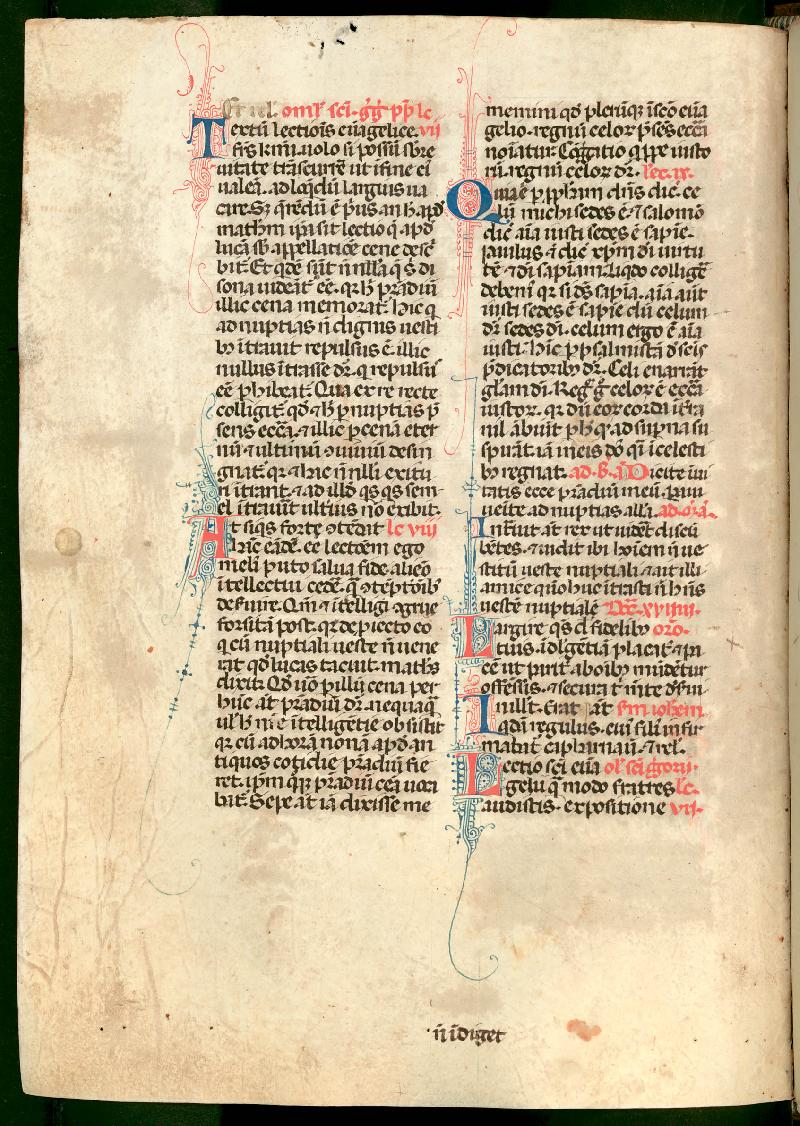 Et rel. omł. sci. gg̃. pp̃. lc̃
Textũ lectiois euãgelice. vii
frs̃ kmi. uolo si possũ sb̾re
uitate trãscurre ut ĩ fine ei
ualeã. ad loq̃dũ largius ua
care. Sz q̃rẽdũ ẽ p̾us an h̾ apd̾
mathm ip̃a sit lectio q̃ apd̾
lucã sb̾ appellatiõe cene desc̾
bit̾. Et qdẽ sũt ñnlla q̃ s̾ di
sona uident̾ eẽ. qr h̾ prãdiũ
illic cena memorat̾. hic q
ad nuptias ñ dignis uesti
bꝫ ĩtrauit repulsus ẽ. illic
nullus ĩtrasse dr̃. q repulsus
eẽ phibeat̾. Qua ex re recte
colligit̾ qd̾ ⁊ h̾ p nuptias p̃
sens ecc̃a. ⁊ illic p cenã eter
nũ ⁊ ultimũ ꝯuiuiũ desig
gnat̾. qr ⁊ hãc ñnlli exitu
ri ĩtrant. ⁊ ad illd̾ qsqs sem
el ĩtrauit ulterius nõ exibit.
At siqs forte ꝯtẽdit lc̃ viii
hãc eãdẽ. eẽ lectõem ego
meli puto salua fide alieo
ĩtellectui cedẽ. q̃ ꝯtẽptõibꝫ
deseruire. Qm̃ ⁊ ĩtelligi ꝯgrue
forsitã post. qr de piecto eo
q cũ nuptiali ueste ñ uene
rat qd̾ lucas tacuit. maths̾
dixit. Qd̾ uõ p illũ cena per
hũc aũt prãdiũ dr̃. nequaq̃
ul h̾ nr̃e ĩtelligẽtie obsistit
qr cũ ad horã nonã apd̾ an
tiquos cotidie prãdiũ fie
ret. ip̃m qq prãdiũ cea uoca
bit̾. Sepe aũt iã dixisse me
memini qd̾ plerũq ĩ sc̃o euã
gelio. regnũ celor p̃sẽs ecc̃a
noĩatur. Cõg̾gatio q̾ppe iusto
rũ. regnũ celor dr̃. lec. ix.
Quia e p pphãm dñs dic̃. ce
lũ michi sedes ẽ. ⁊ salomõ
dic̃ aĩa iusti sedes ẽ sapie.
paulus ⁊ dic̃ xpm̃ di uirtu
tẽ ⁊ di sapiam. liq̾do collig̾e
debem̾ qr si ds̃ sapĩa. aĩa aũt
iusti sedes ẽ sapie dũ celum
dr̃ sedes di. celum ergo ẽ aĩa
iusti. hĩc p psalmistã d̾ scis
p̃dicatoribꝫ dr̃. Celi enarrãt
gl̃am di. Reg̃ g̾ celor ẽ ecc̃a
iustor. qr dũ eor corda ĩ t̾ra
nil ãbiũt p h̾ q̾ ad sup̾na su
spirãt. iã ĩ eis dõ q̾i ĩ celesti
bꝫ regnat. ad. b̾. añ. Dicite ĩui
tatis ecce prãdiũ meũ paui
ueĩte ad nuptias all̃a. ad. oĩa.
Intrauit aũt rex ut uidet̾ discũ
bẽtes. ⁊ uidit ibi hoĩem ñ ue
stitũ ueste nuptiali ⁊ ait illi
amice quõ huc ĩtrasti ñ hñs
uestẽ nuptialẽ Dc̃a. xviiii.
Largire q̾s d fidelibꝫ oro.
tuis. ĩdulgẽtiã placat̾ ⁊ pa
cẽ ut parit̾ ab oĩbꝫ mũdẽtur
offẽsis. ⁊ secura t̾ mẽte d̾serui
In illt̾. Erat aũt sm̃ iohem
q̾dã regulus. cui̾ fili̾ infir
mabat̾ capharnaũ. ⁊ rel̃.
Lectio sc̃i euã ol̃. sc̃i g̾gorii.
gelii q̃ modo fratres lc̃.
audistis. expositione vii.
ñ ĩdiget